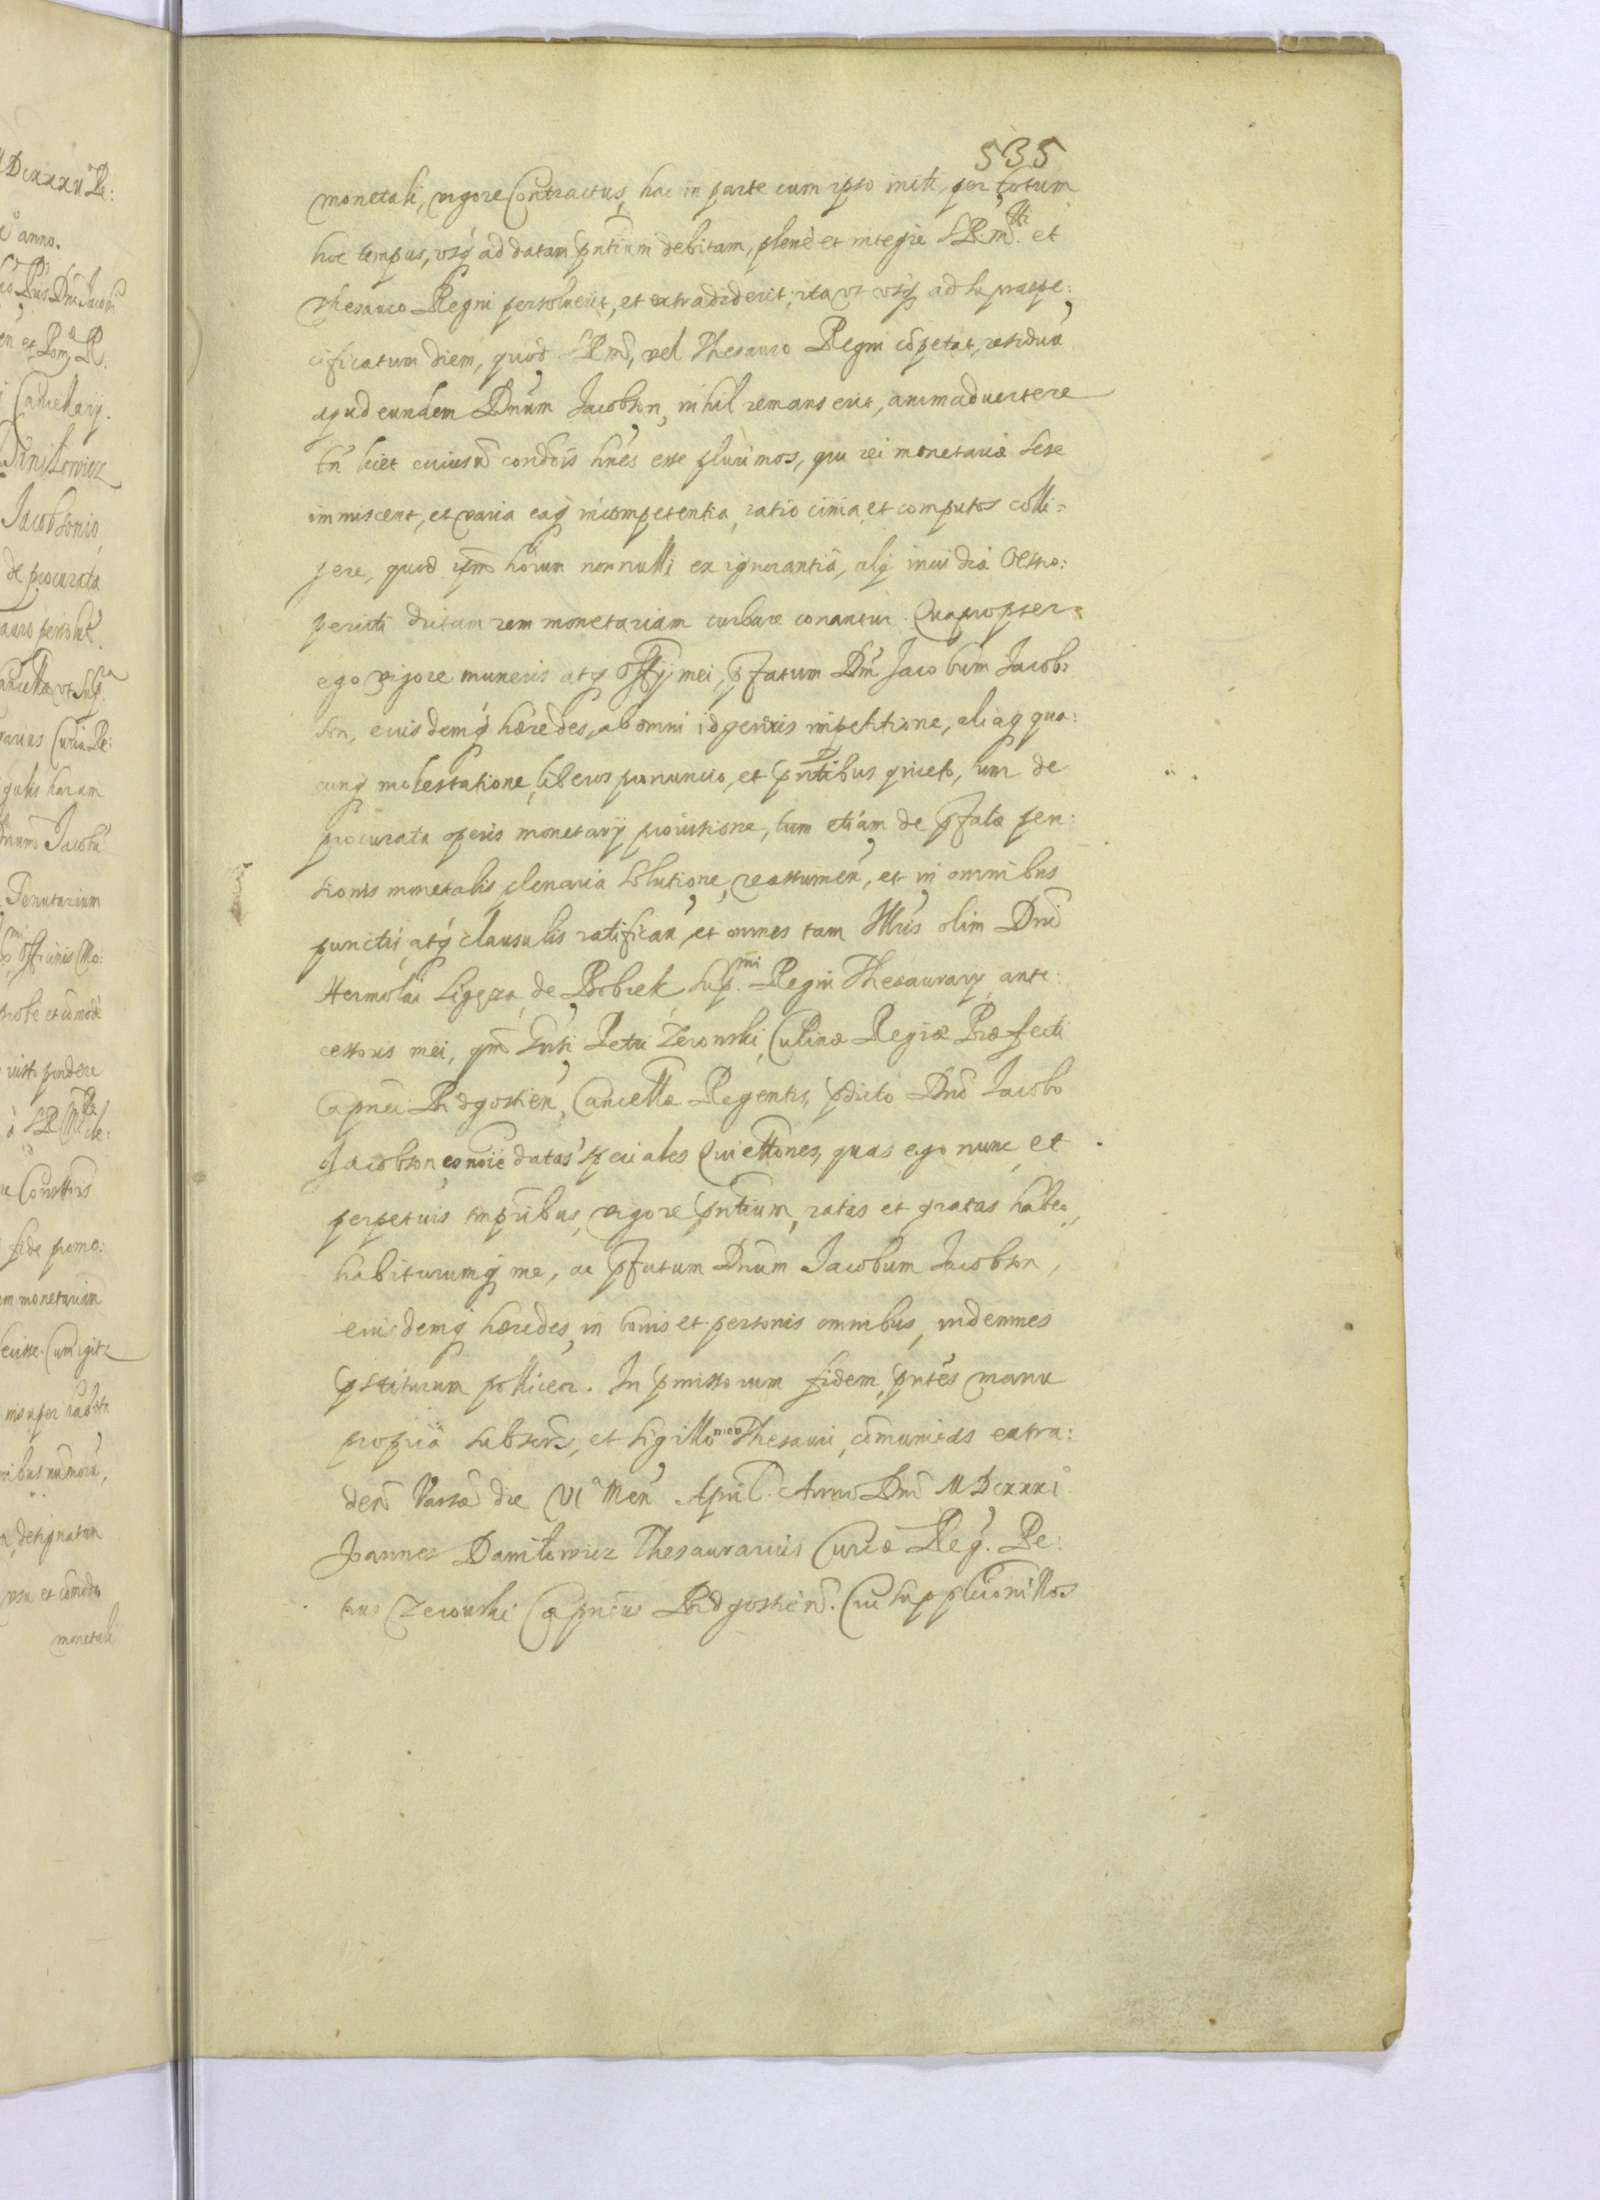 535
monetali, vigore Contractus, hac in parte cum ipso initi, per totum
hoc tempus, vsq ad datam pntium debitam, plene et integre S.R.M.tti et
Thesauro Regni persoluerit, et extradiderit, ita vt vsq ad suprasspe:
cificatum diem, quod SRM, vel Thesauro Regni cõpetat, residua
apud eundem Dnum Jacobson, nihil remanserit, animaduertere
tñ licet cuiusuis condõis hñes esse plurimos, qui rei monetariæ sese
immiscent, et varia eaq incompetentia, ratiocinia et computos colli=
gere, quod horum nonnulli ex ignorantiâ, alij inuidiâ
dictam rem monetariam turbare conantur. Quapropter
ego vigore muneris atq officij mei, pfatum Dñm Jacobum Jacob:
son, eiusdemq hæredes, ab omni idgeneris impetitione, aliaq qua:
cunq molestatione, liberos pronuncio, et pntibus quieto, tum de
procurata operis monetarij prouisione, tum etiam de pfatæ pen:
sionis monetalis plenaria solutione, reassumeñ, et in omnibus
punctis, atq clausulis ratifican, et omnes tam Illris olim Dni
Hermolai Ligęza de Bobrek Sup.mi Regni Thesaurarij ante:
cessoris mei, qm Petri Zeronski, Culinæ Regiæ Præfecti
Capnei Bidgostien, Cancellæ Regentis, pdicto Dño Jacobo
Jacobson eo noie datas speciales Quiettones, quas ego nunc et
perpetuis tmpribus, vigore pntium, ratas et gratas habeo,
habiturumq me, ac pfatum Dnum Jacobum Jacobson,
eiusdemq hæredes, in bonis et personis omnibus, indemnes
pstiturum polliceor. In pmissorum fidem, pntes manu
propriâ subscr, et sigillo meo Thesauri, cõmunitas extra:
den Varsæ die VI Men April. Anno Dni MDCXXXI
Joannes Daniłowicz Thesaurarius Curiæ Reg. Pe:
trus Zeronski Capneus Bidgostien. Cui supplicõni Nos